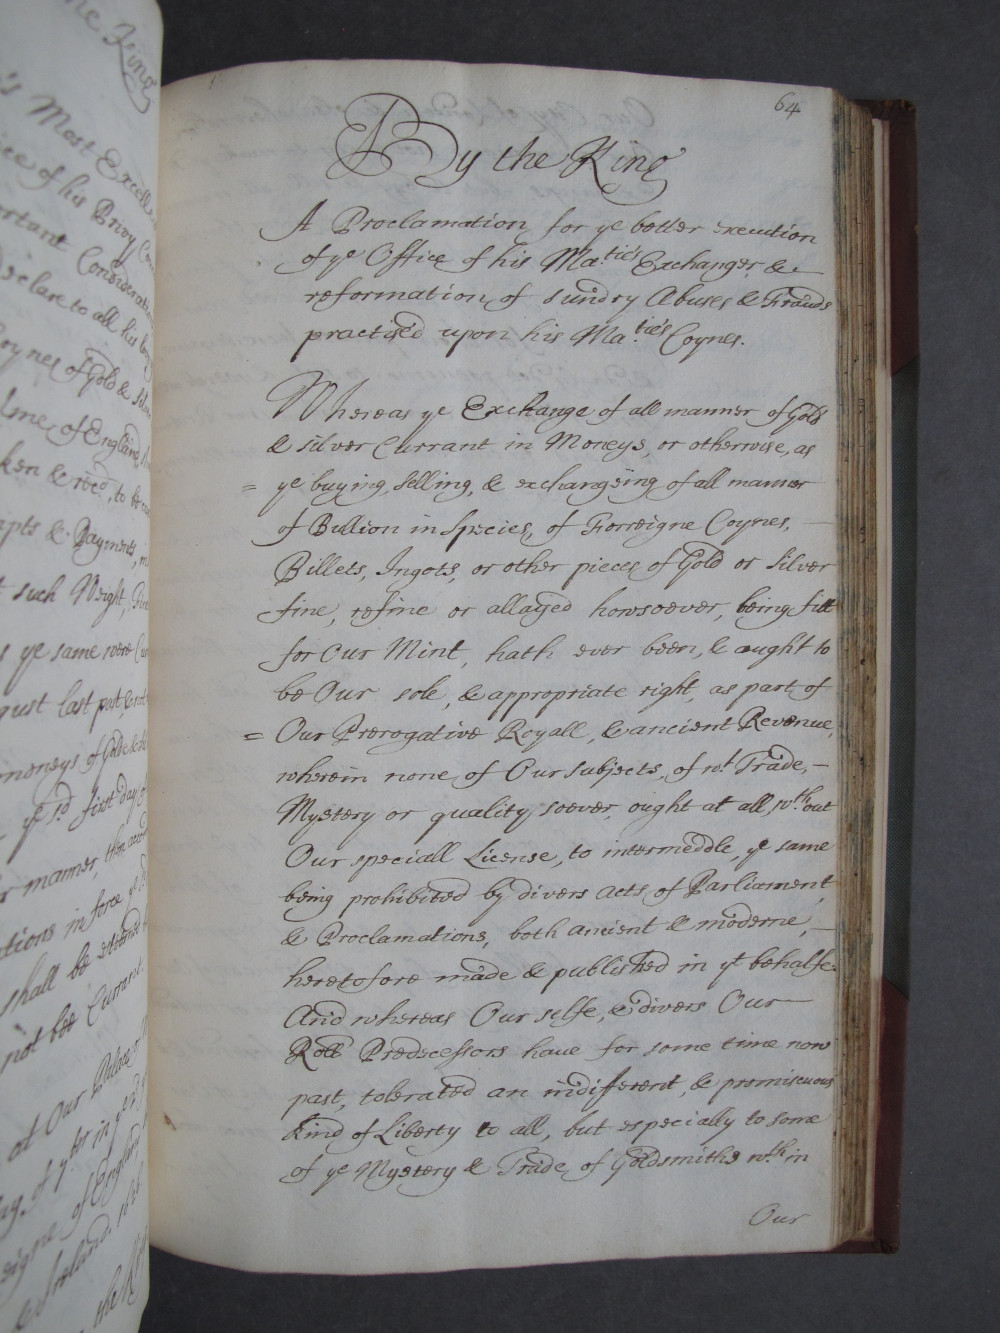 he King
's Most Excell
ice of his Privy Coun
ortant Consideration
Declare to all his lov
oynes of Gold & Silve
lme of England
ken & rec.d, to be
pts & Payments, m
t such Weight, Fine
s ye same were Cur
gust last past, &
moneys of Gold &
ye s.d first day o
r manner, then
ations in force ye
shall be esteemed
not bee Currant.
at Our Palace
ay, of ye
eigne of England
& Ireland. 163
the King
64
By the King
A Proclamation for ye better execution
of ye Office of his Ma.tie's Exchanger, &
reformation, of sundry Abuses & Frauds
practised upon his Ma.tie's Coynes.
Whereas ye Exchange of all manner of Gold
& silver Currant in Moneys, or otherwise, as
= ye buying, selling, & exchangeing of all manner
of Bullion in Species, of Forreigne Coynes, —
Billets, Ingots, or other pieces of Gold or silver
fine, refine or allayed howsoever, being fitt
for Our Mint, hath ever been, & ought to
be Our sole, & appropriate right, as part of
= Our Prerogative Royall, & ancient Revenue,
wherein none of Our subjects, of w.t Trade, –
Mystery or quality soever, ought at all, w.thout
Our speciall License, to intermeddle, ye same
being prohibited by divers Acts of Parliament,
& Proclamations, both Ancient & moderne, —
heretofore made & published in yt behalfe.
And whereas Our selfe, & divers Our —
Roll Predecessors have for some time now
past, tolerated an indifferent, & promiscuous
kind of Liberty to all, but especially to some
of ye Mystery & Trade of Goldsmiths w.thin
Our